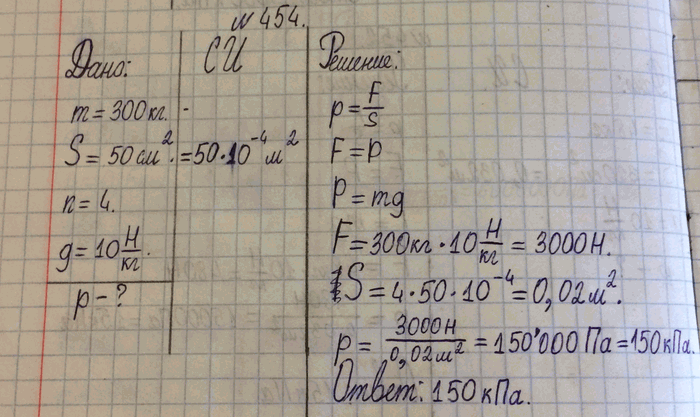 №454.
Дано:
СИ
m = 300 кг. -
S = 50 см². = 50·10⁻⁴ м²
n = 4.
g = 10 Н/кг.
p - ?
Решение:
p = F/S
F = P
P = mg
F = 300 кг · 10 Н/кг = 3000 Н.
S = 4·50·10⁻⁴ = 0,02 м².
p = 3000 Н/0,02 м² = 150'000 Па = 150 кПа.
Ответ: 150 кПа.